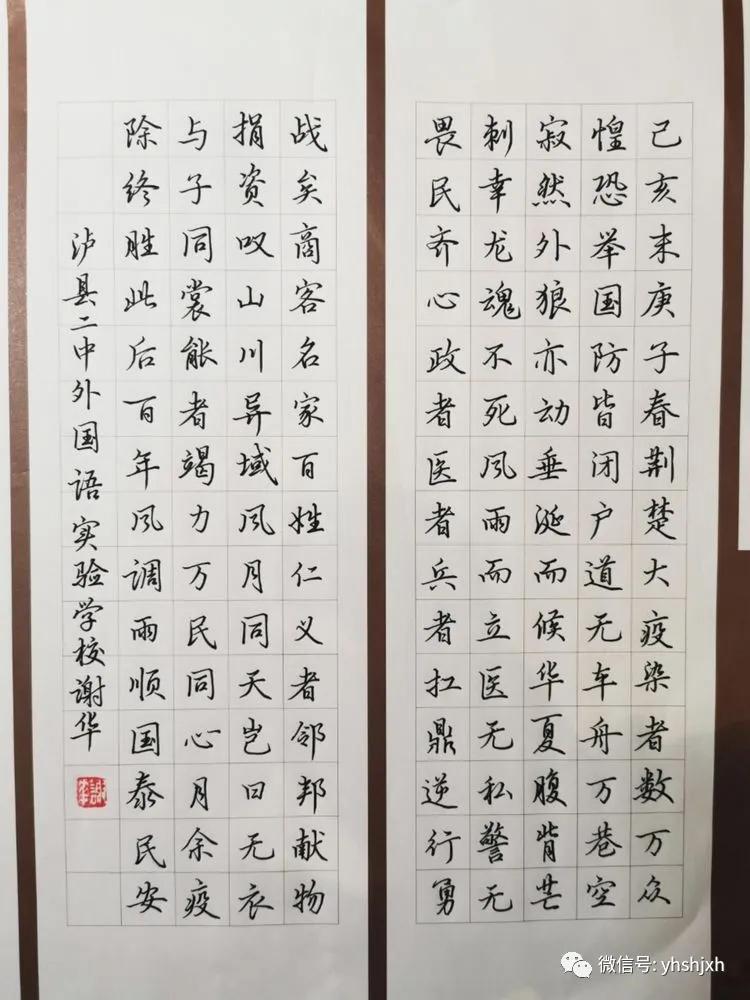 己亥末庚子春荆楚大疫染者数万众
惶恐举国防皆闭户道无车舟万巷空
寂然外狼亦动垂涎而候华夏腹背芒
刺幸龙魂不死风雨而立医无私警无
畏民齐心政者医者兵者扛鼎逆行勇
战矣商客名家百姓仁义者邻邦献物
捐资叹山川异域风月同天岂曰无衣
与子同裳能者竭力万民同心月余疫
除终胜此后百年风调雨顺国泰民安
泸县二中外国语实验学校谢华
謝華
微信号: yhshjxh